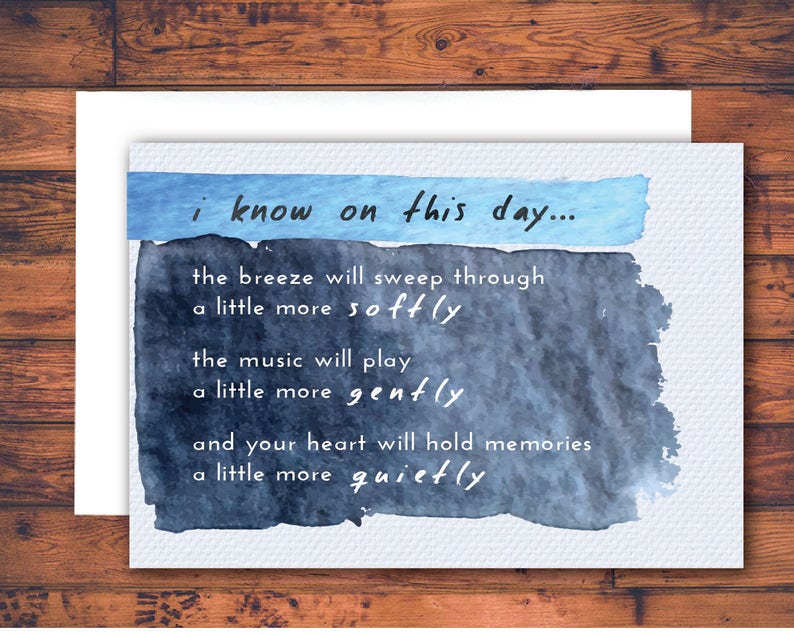 i know on this day...
the breeze will sweep through
a little more softly
the music will play
a little more gently
and your heart will hold memories
a little more quietly